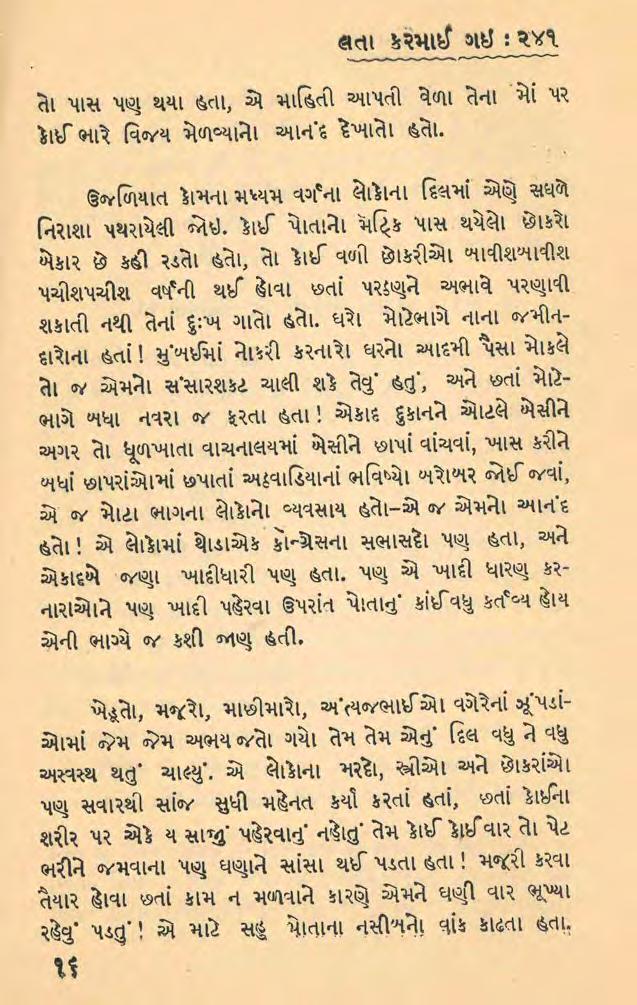 લતા કરમાઈ ગઈ : ૨૪૧
તો પાસ પણ થયા હતા, એ માહિતી આપતી વેળા તેના મોં પર
કોઈ ભારે વિજય મેળવ્યાનો આનંદ દેખાતો હતો.
ઉજળિયાત કોમના મધ્યમ વર્ગના લોકોના દિલમાં એણે સઘળે
નિરાશા પથરાયેલી જોઇ. કોઈ પોતાનો મૅટ્રિક પાસ થયેલો છોકરો
બેકાર છે કહી રડતો હતો, તો કોઈ વળી છોકરીઓ બાવીશબાવીશ
પચીશપચીશ વર્ષની થઈ હોવા છતાં પરઠણને અભાવે પરણાવી
શકાતી નથી તેનાં દુઃખ ગાતો હતો. ઘરો મોટેભાગે નાના જમીન-
દારોના હતાં! મુંબઈમાં નોકરી કરનારો ઘરનો આદમી પૈસા મોકલે
તો જ એમનો સંસારશકટ ચાલી શકે તેવું હતું, અને છતાં મોટે-
ભાગે બધા નવરા જ ફરતા હતા! એકાદ દુકાનને ઓટલે બેસીને
અગર તો ધૂળખાતા વાચનાલયમાં બેસીને છાપાં વાંચવાં, ખાસ કરીને
બધાં છાપરાંઓમાં છપાતાં અઠવાડિયાનાં ભવિષ્યો બરોબર જોઈ જવાં,
એ જ મોટા ભાગના લોકોનો વ્યવસાય હતો-એ જ એમનો આનંદ
હતો! એ લોકોમાં થોડાએક કૉન્ગ્રેસના સભાસદો પણ હતા, અને
એકાદબે જણા ખાદીધારી પણ હતા. પણ એ ખાદી ધારણ કર-
નારાઓને પણ ખાદી પહેરવા ઉપરાંત પોતાનું કાંઈ વધુ કર્તવ્ય હોય
એની ભાગ્યે જ કશી જાણ હતી.
ખેડૂતો, મજૂરો, માછીમારો, અંત્યજભાઈઓ વગેરેનાં ઝૂંપડાં-
ઓમાં જેમ જેમ અભય જતો ગયો તેમ તેમ એનું દિલ વધુ ને વધુ
અસ્વસ્થ થતું ચાલ્યું. એ લોકોના મરદો, સ્ત્રીઓ અને છોકરાંઓ
પણ સવારથી સાંજ સુધી મહેનત કર્યાં કરતાં હતાં, છતાં કોઈના
શરીર પર એકે ય સાજું પહેરવાનું નહોતું તેમ કોઈ કોઈ વાર તો પેટ
ભરીને જમવાના પણ ઘણાને સાંસા થઈ પડતા હતા! મજૂરી કરવા
તૈયાર હોવા છતાં કામ ન મળવાને કારણે એમને ઘણી વાર ભૂખ્યા
રહેવું પડતું! એ માટે સહુ પોતાના નસીબનો વાંક કાઢતા હતા.
૧૬